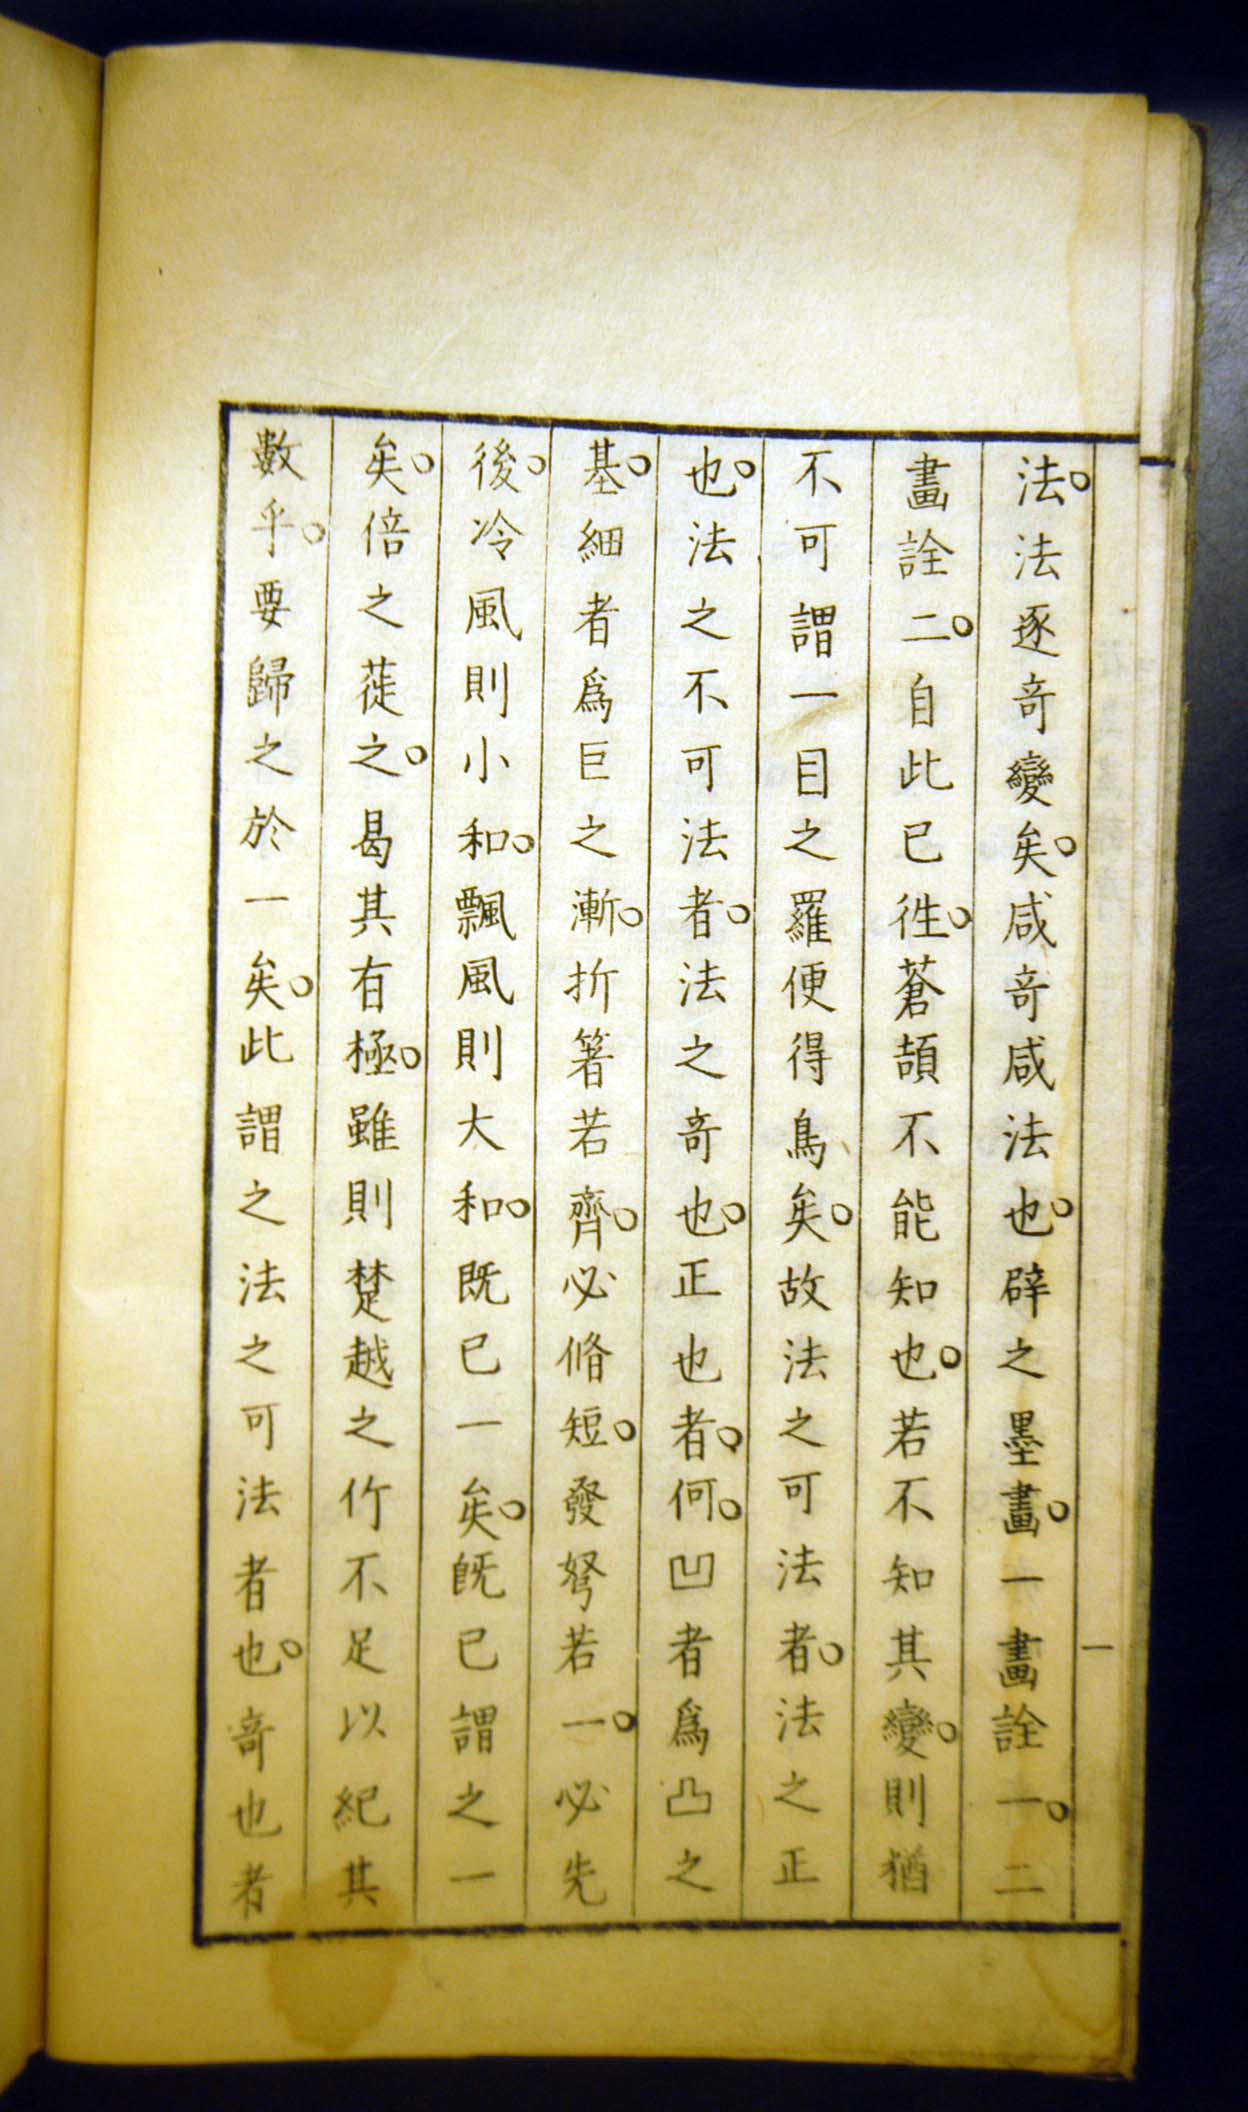 法。法逐竒變矣。咸竒咸法也。辟之墨畫。一畫詮一。二
畫詮二。自此已徃。蒼頡不能知也。若不知其變。則猶
不可謂一目之羅便得鳥矣。故法之可法者。法之正
也。法之不可法者。法之竒也。正也者。何。凹者爲凸之
基。細者爲巨之漸。折箸若齊。必脩短。發弩若一。必先
後。冷風則小和。飄風則大和。既已一矣。旣已謂之一
矣。倍之蓰之。曷其有極。雖則楚越之竹不足以紀其
數乎。要歸之於一矣。此謂之法之可法者也。竒也者
一